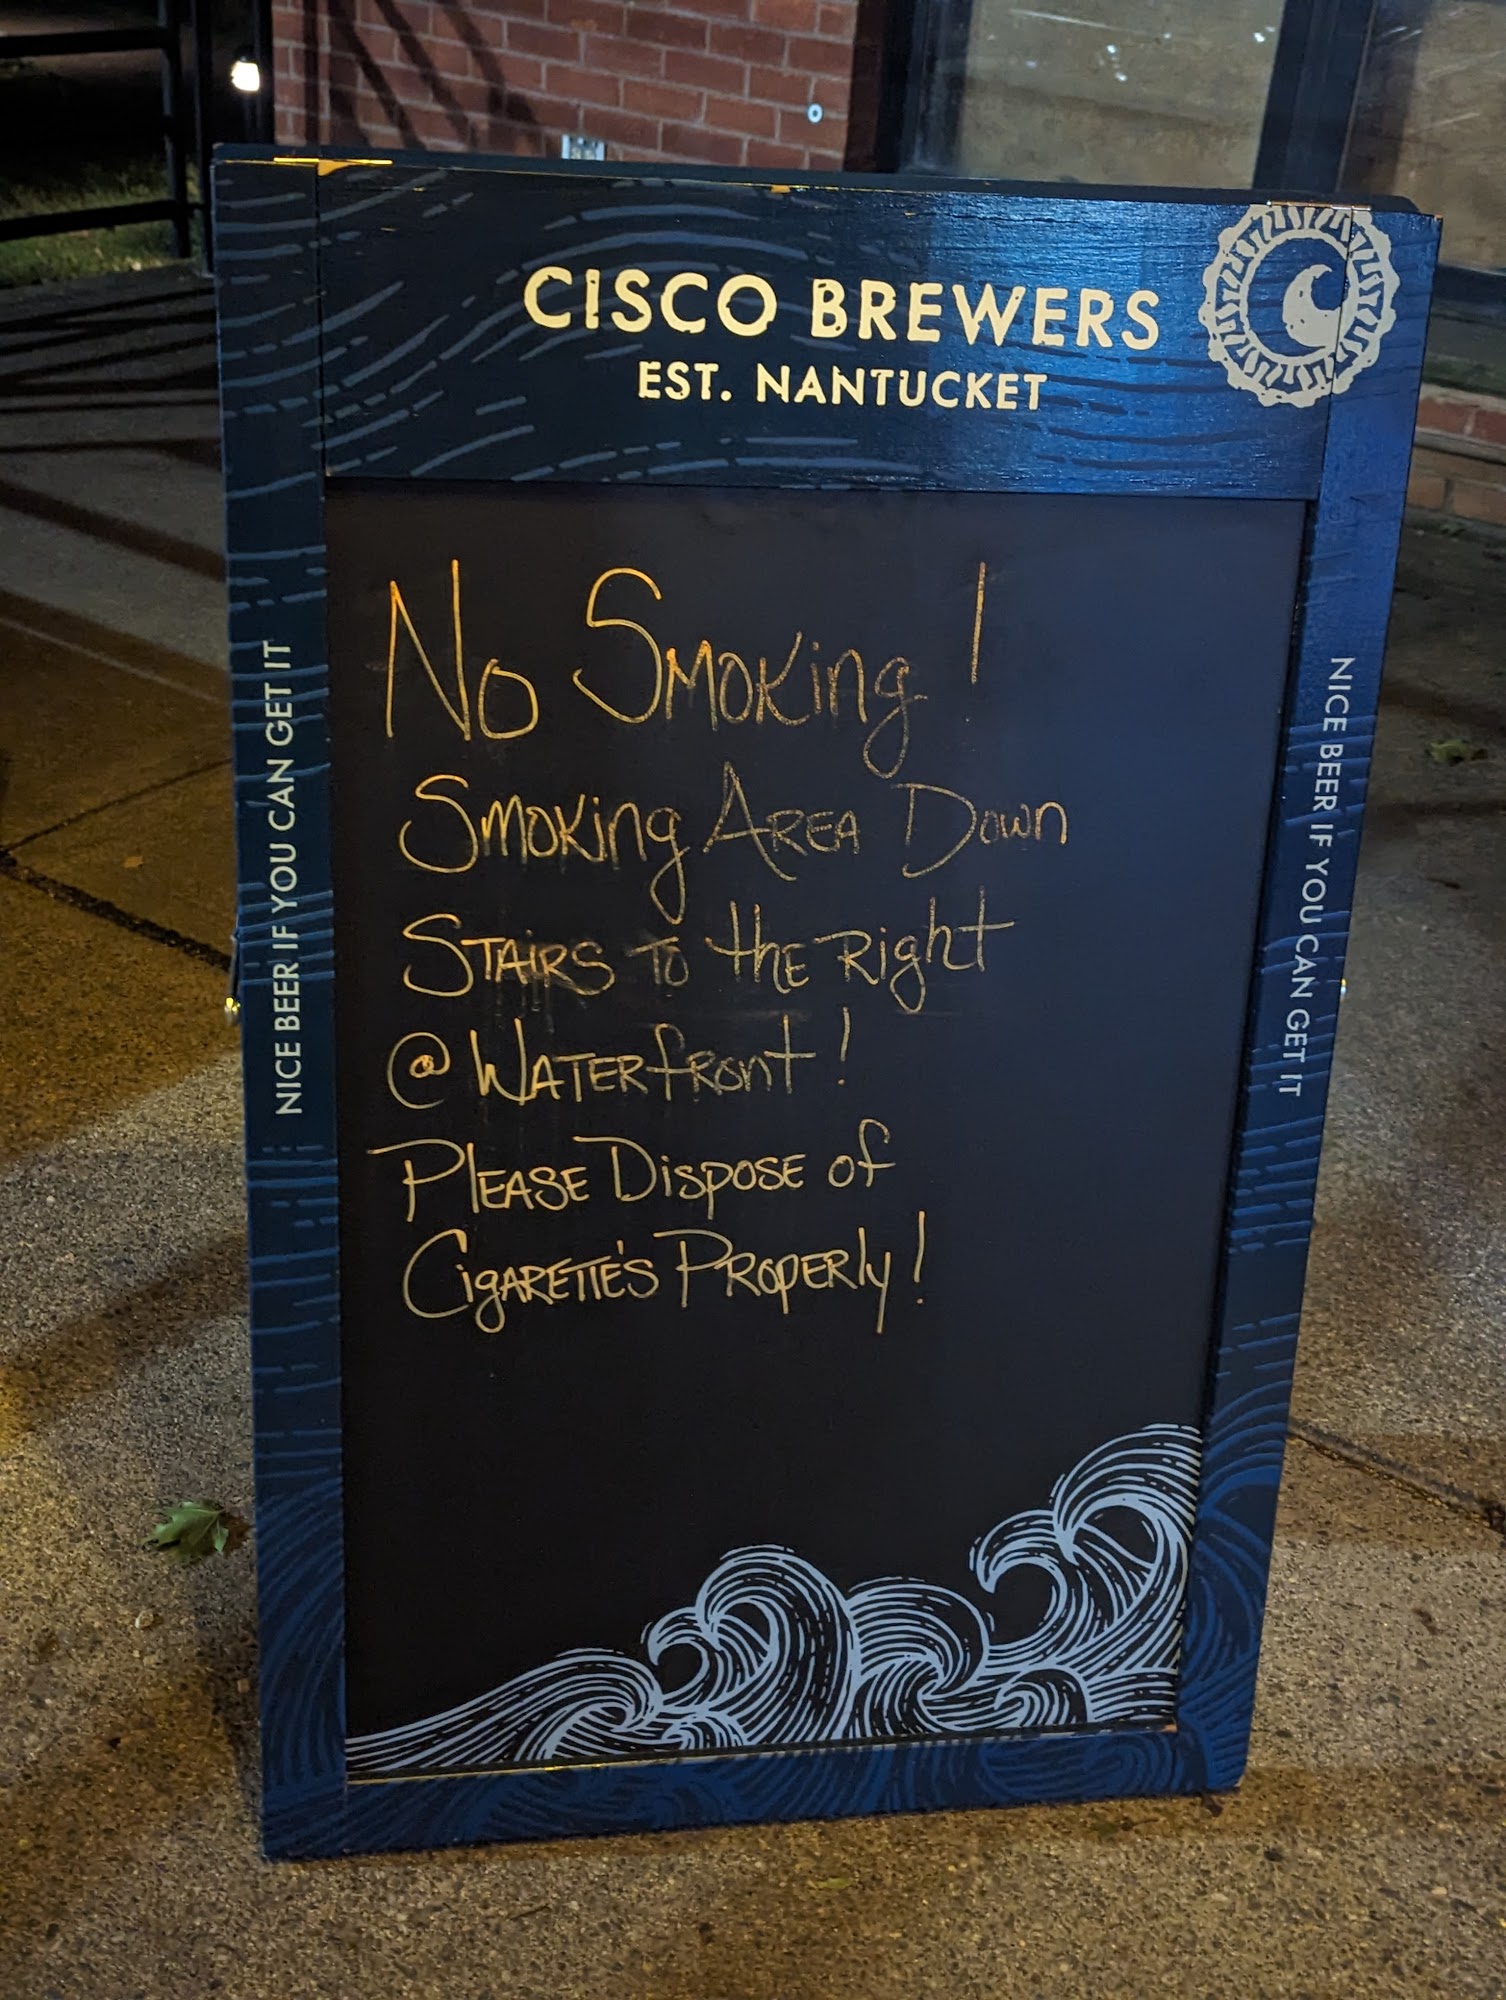 CISCO BREWERS
EST. NANTUCKET
NICE BEER IF YOU CAN GET IT
No Smoking!
Smoking Area Down
Stairs To the Right
@ Waterfront!
Please Dispose of
Cigarette's Properly!
NICE BEER IF YOU CAN GET IT